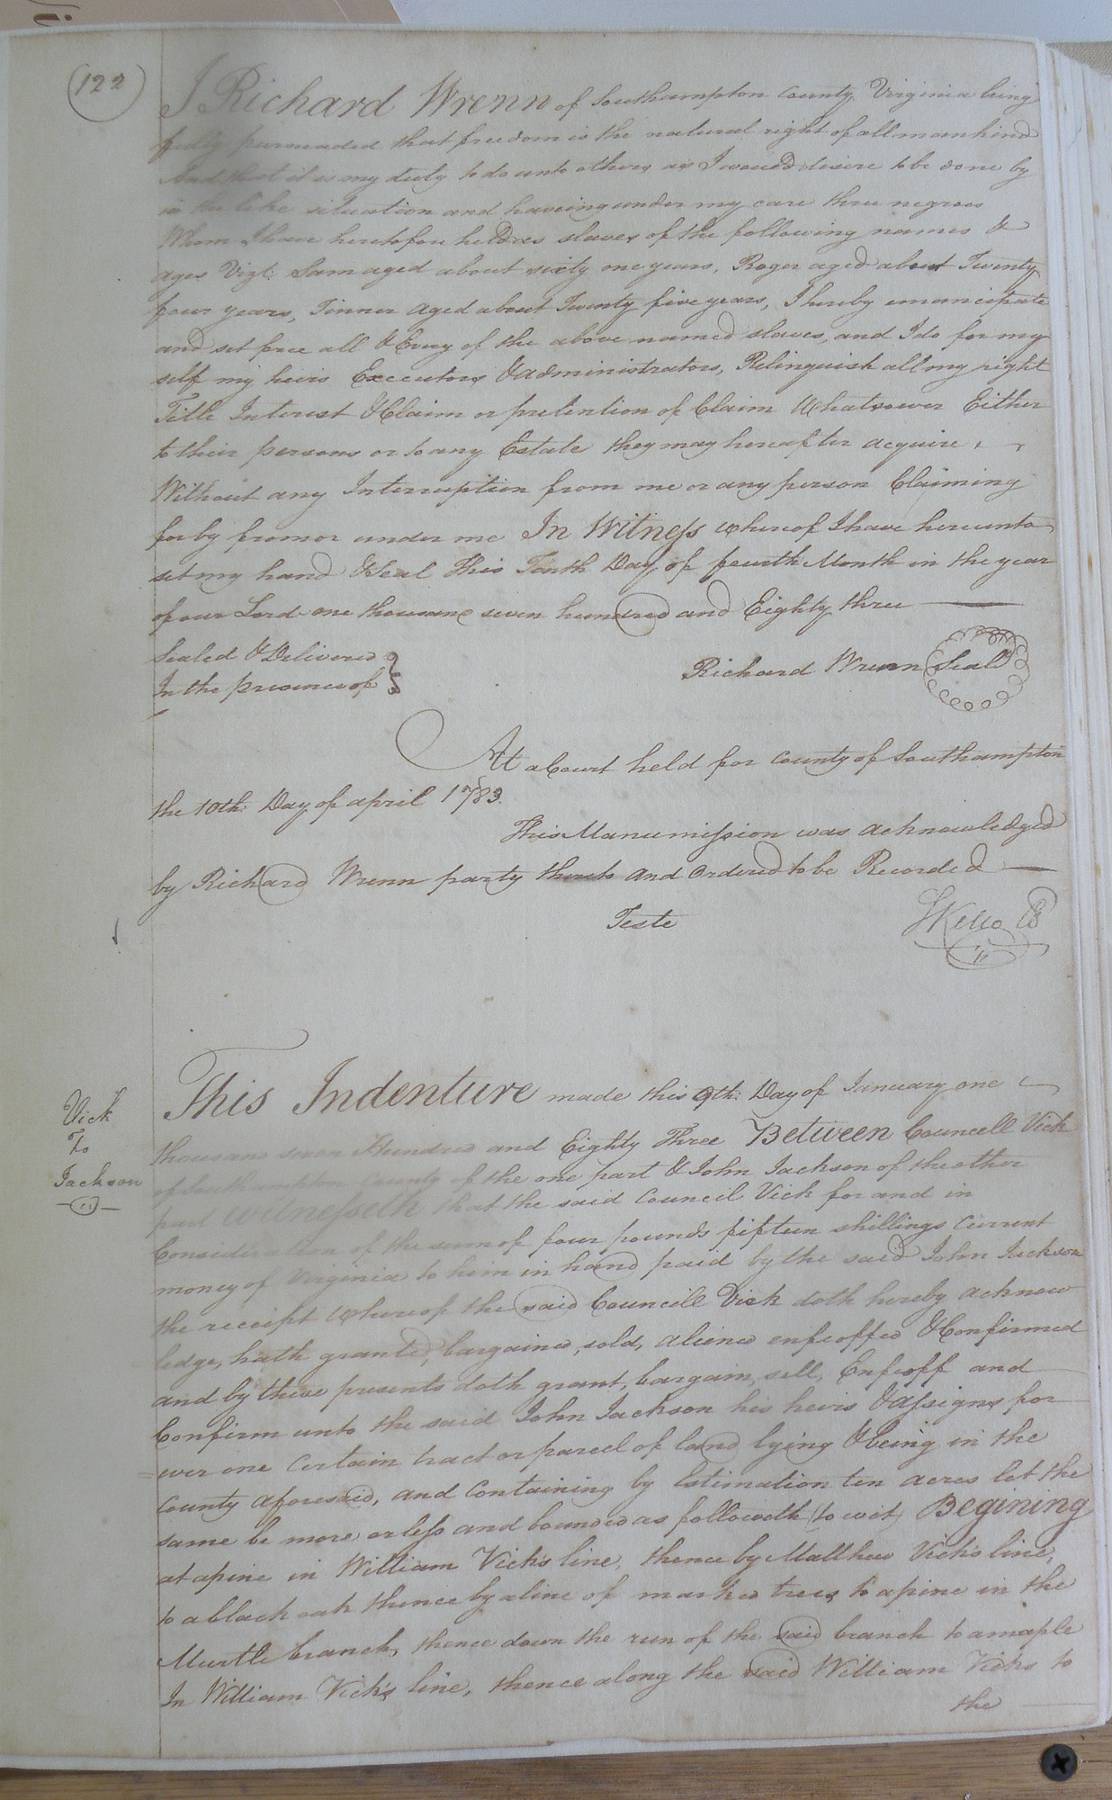 122
I Richard Wrenn of Southampton County Virginia being
fully perswaded that freedom is the natural right of all mankind
And that it is my duty to do unto others as I would desire to be done by
in the like situation and haveing under my care three negroes
Whom I have heretofore held as slaves of the following names &
ages Vizt. Sam aged about sixty one years, Roger aged about Twenty
four years, Tinner aged about Twenty five years, I hereby emancipate
and set free all & Every of the above named slaves, and I do for my
self my heirs Executors & administrators, Relinquish all my right
Title Interest & Claim or pretention of Claim Whatsoever Either
to their persons or to any Estate they may hereafter acquire,
Without any Interruption from me or any person Claiming
for by from or under me In Witness whereof I have hereunto
set my hand & Seal This Tenth Day of fourth Month in the year
of our Lord one thousand seven hundred and Eighty three
Sealed & Delivered
In the presence of
Richard Wrenn Seal
At a Court held for County of Southampton
the 10th. Day of april 1783.
This Manumission was acknowledged
by Richard Wrenn party thereto and Ordered to be Recorded
Teste
Kello
Vick
To
Jackson
This Indenture made this 9th. Day of January one
thousand seven Hundred and Eighty Three Between Councell Vick
of Southampton County of the one part & John Jackson of the other
part Witnesseth that the said Council Vick for and in
Consideration of the sum of four pounds fifteen shillings Current
money of Virginia to him in hand paid by the said John Jackson
the receipt whereof the said Councill Vick doth hereby acknow
ledge, hath granted, bargained, sold, aliened enfeoffed & Confirmed
and by these presents doth grant, bargain, sell, Enfeoff and
Confirm unto the said John Jackson his heirs & assigns for
=ever one Certain tract or parcel of land lying & being in the
County aforesaid, and Containing by Estimation ten acres let the
same be more or less and bounded as followeth (to wit) Begining
at a pine in William Vick's line, thence by Matthew Vick's line,
to a black oak thence by a line of marked trees to a pine in the
Murtle branch, thence down the run of the said branch to a maple
In William Vick's line, thence along the said William Vicks to
the